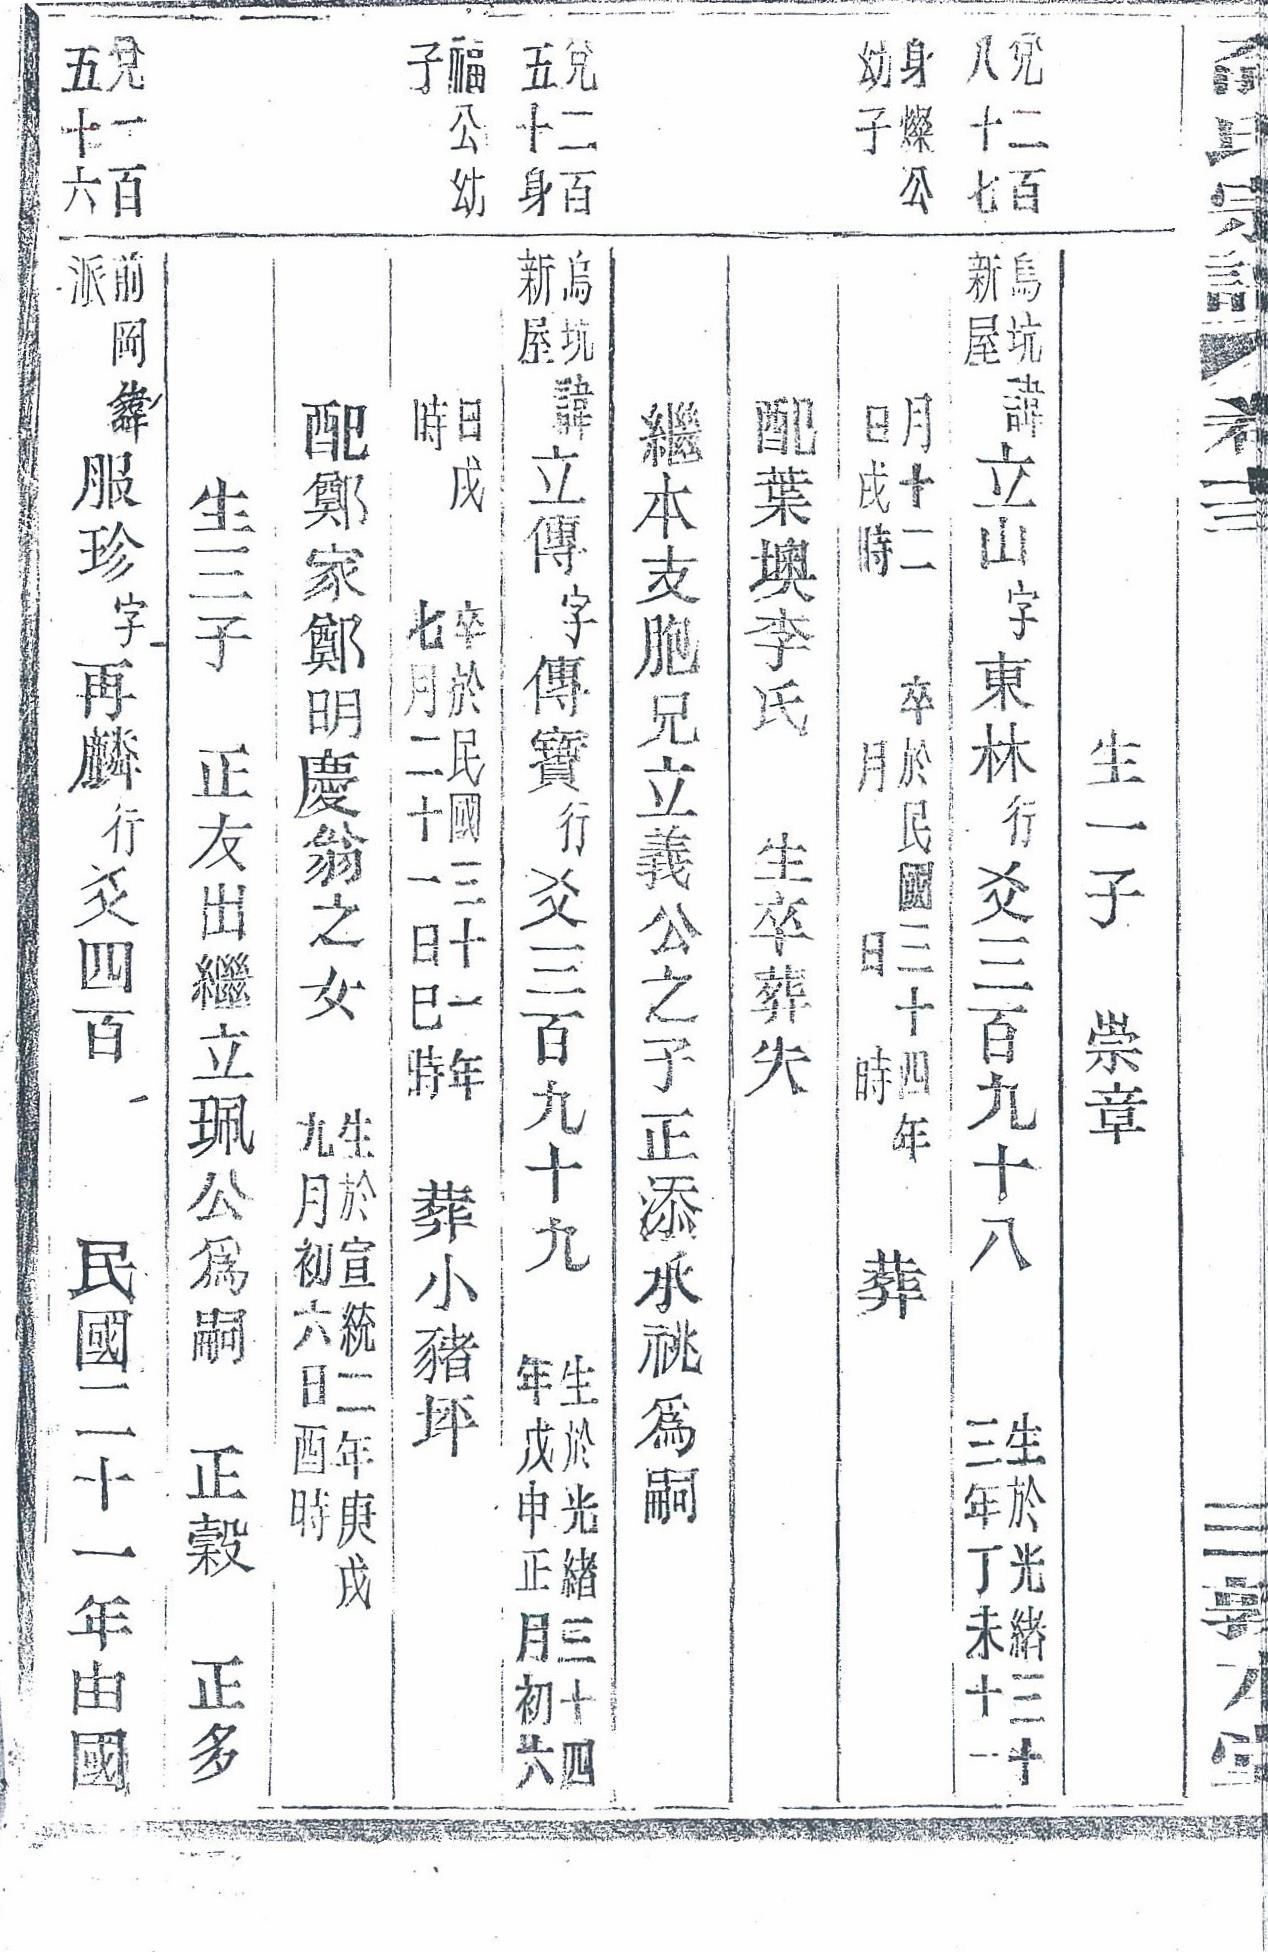 氏宗譜
卷三
三
生一子　崇章
兌二百
八十七
身燦公
幼子
烏坑
新屋
諱立山字東林行爻三百九十八
生於光緒三十
三年丁未十一
月十二
日戌時
卒於民國三十四年
月　日　時
葬
配葉墺李氏　生卒葬失
繼本支胞兄立義公之子正添承祧爲嗣
兌二百
五十身
福公幼
子
烏坑
新屋
諱立傳字傳寶行爻三百九十九
生於光緒三十四
年戊申正月初六
日戌
時
卒於民國三十一年
七月二十一日巳時
葬小豬坪
配鄭家鄭明慶翁之女
生於宣統二年庚戌
九月初六日酉時
生三子　正友出繼立珮公爲嗣　正穀　正多
兌一百
五十六
前岡
派
諱服珍字再麟行爻四百
民國二十一年由國